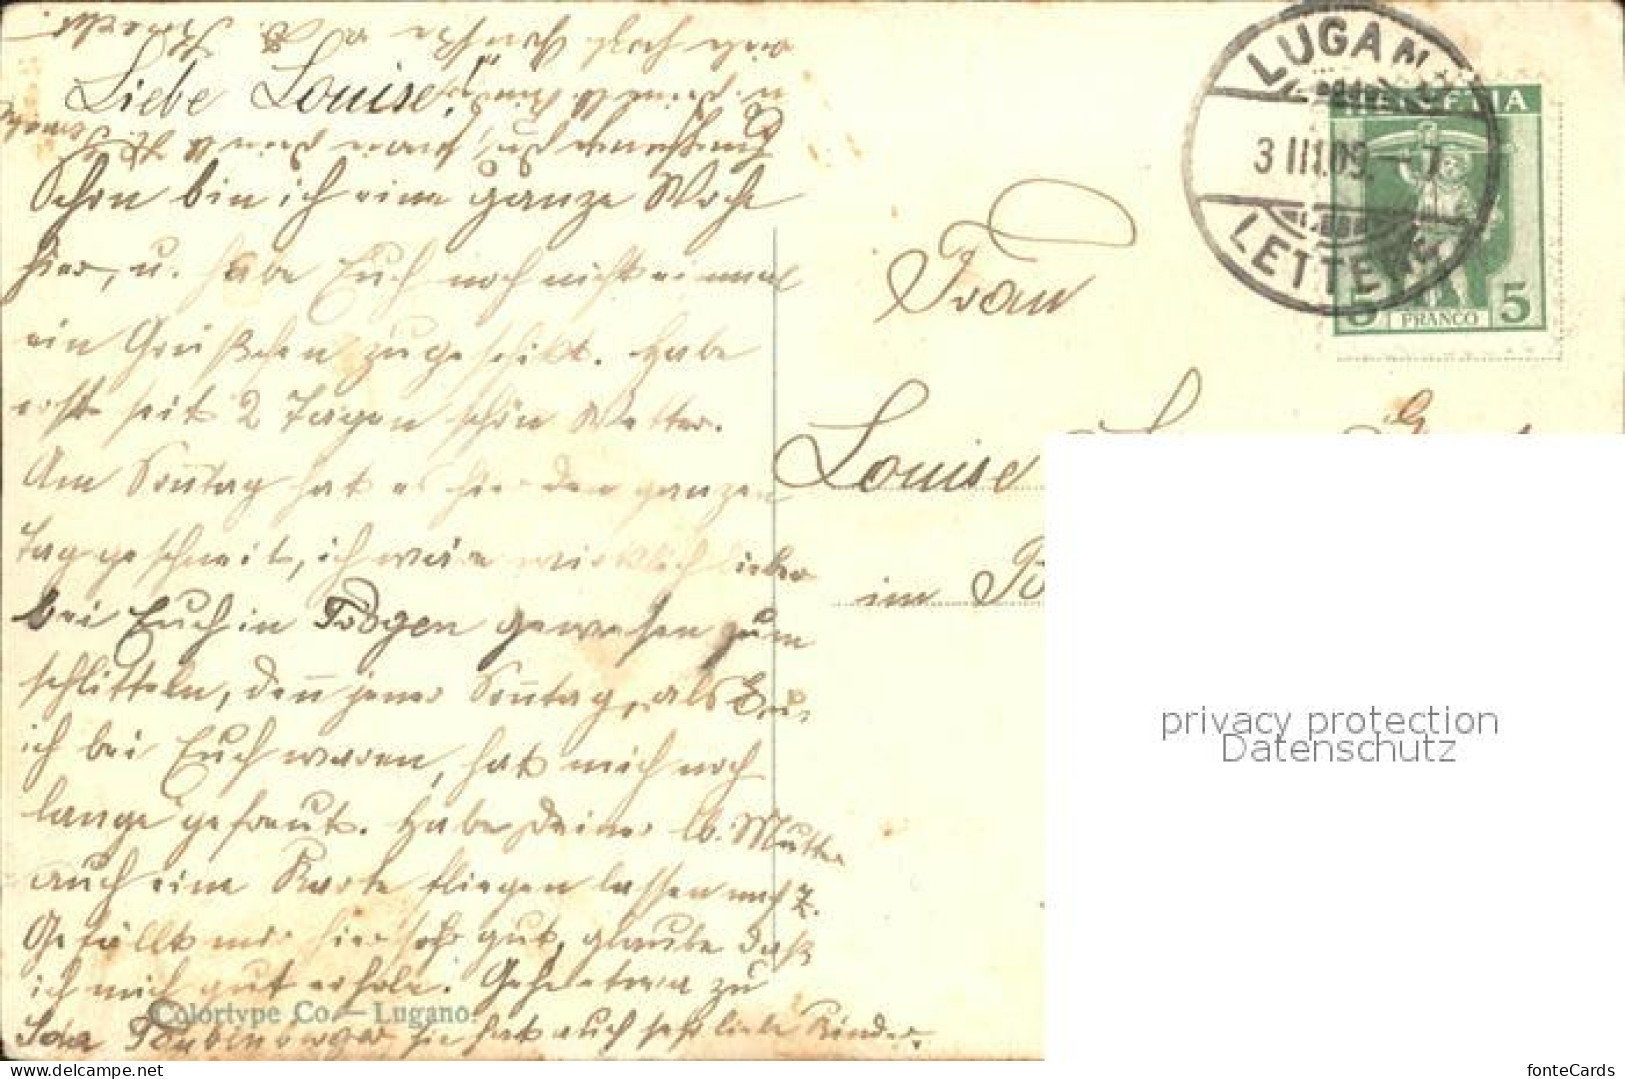 Liebe Louise!
Schon bin ich eine ganze Woche
hier, u. habe Euch noch nicht einmal
ein Grüßchen zugeschikt. Habe
erst seit 2 Tagen schön Wetter.
Am Sontag hat es hier den ganzen
Tag geschneit, ich wäre wirklich lieber
bei Euch in Trogen gewesen zum
schlitteln, den jener Sontag, als
ich bei Euch waren, hat mich noch
lange gefreut. Habe Deiner lb. Mutter
auch eine Karte fliegen lassen nach Z.
Gefällt mir hier sehr gut, glaube daß
ich mich gut erhole. Gehe etwa zu
sie hat auch sehr liebe Kinder.
Colortype Co. — Lugano.
Frau
Louise
im
LUGANO
3 III.09. - 7
LETTERE
HELVETIA
5 FRANCO 5
privacy protection
Datenschutz
www.delcampe.net
fonteCards